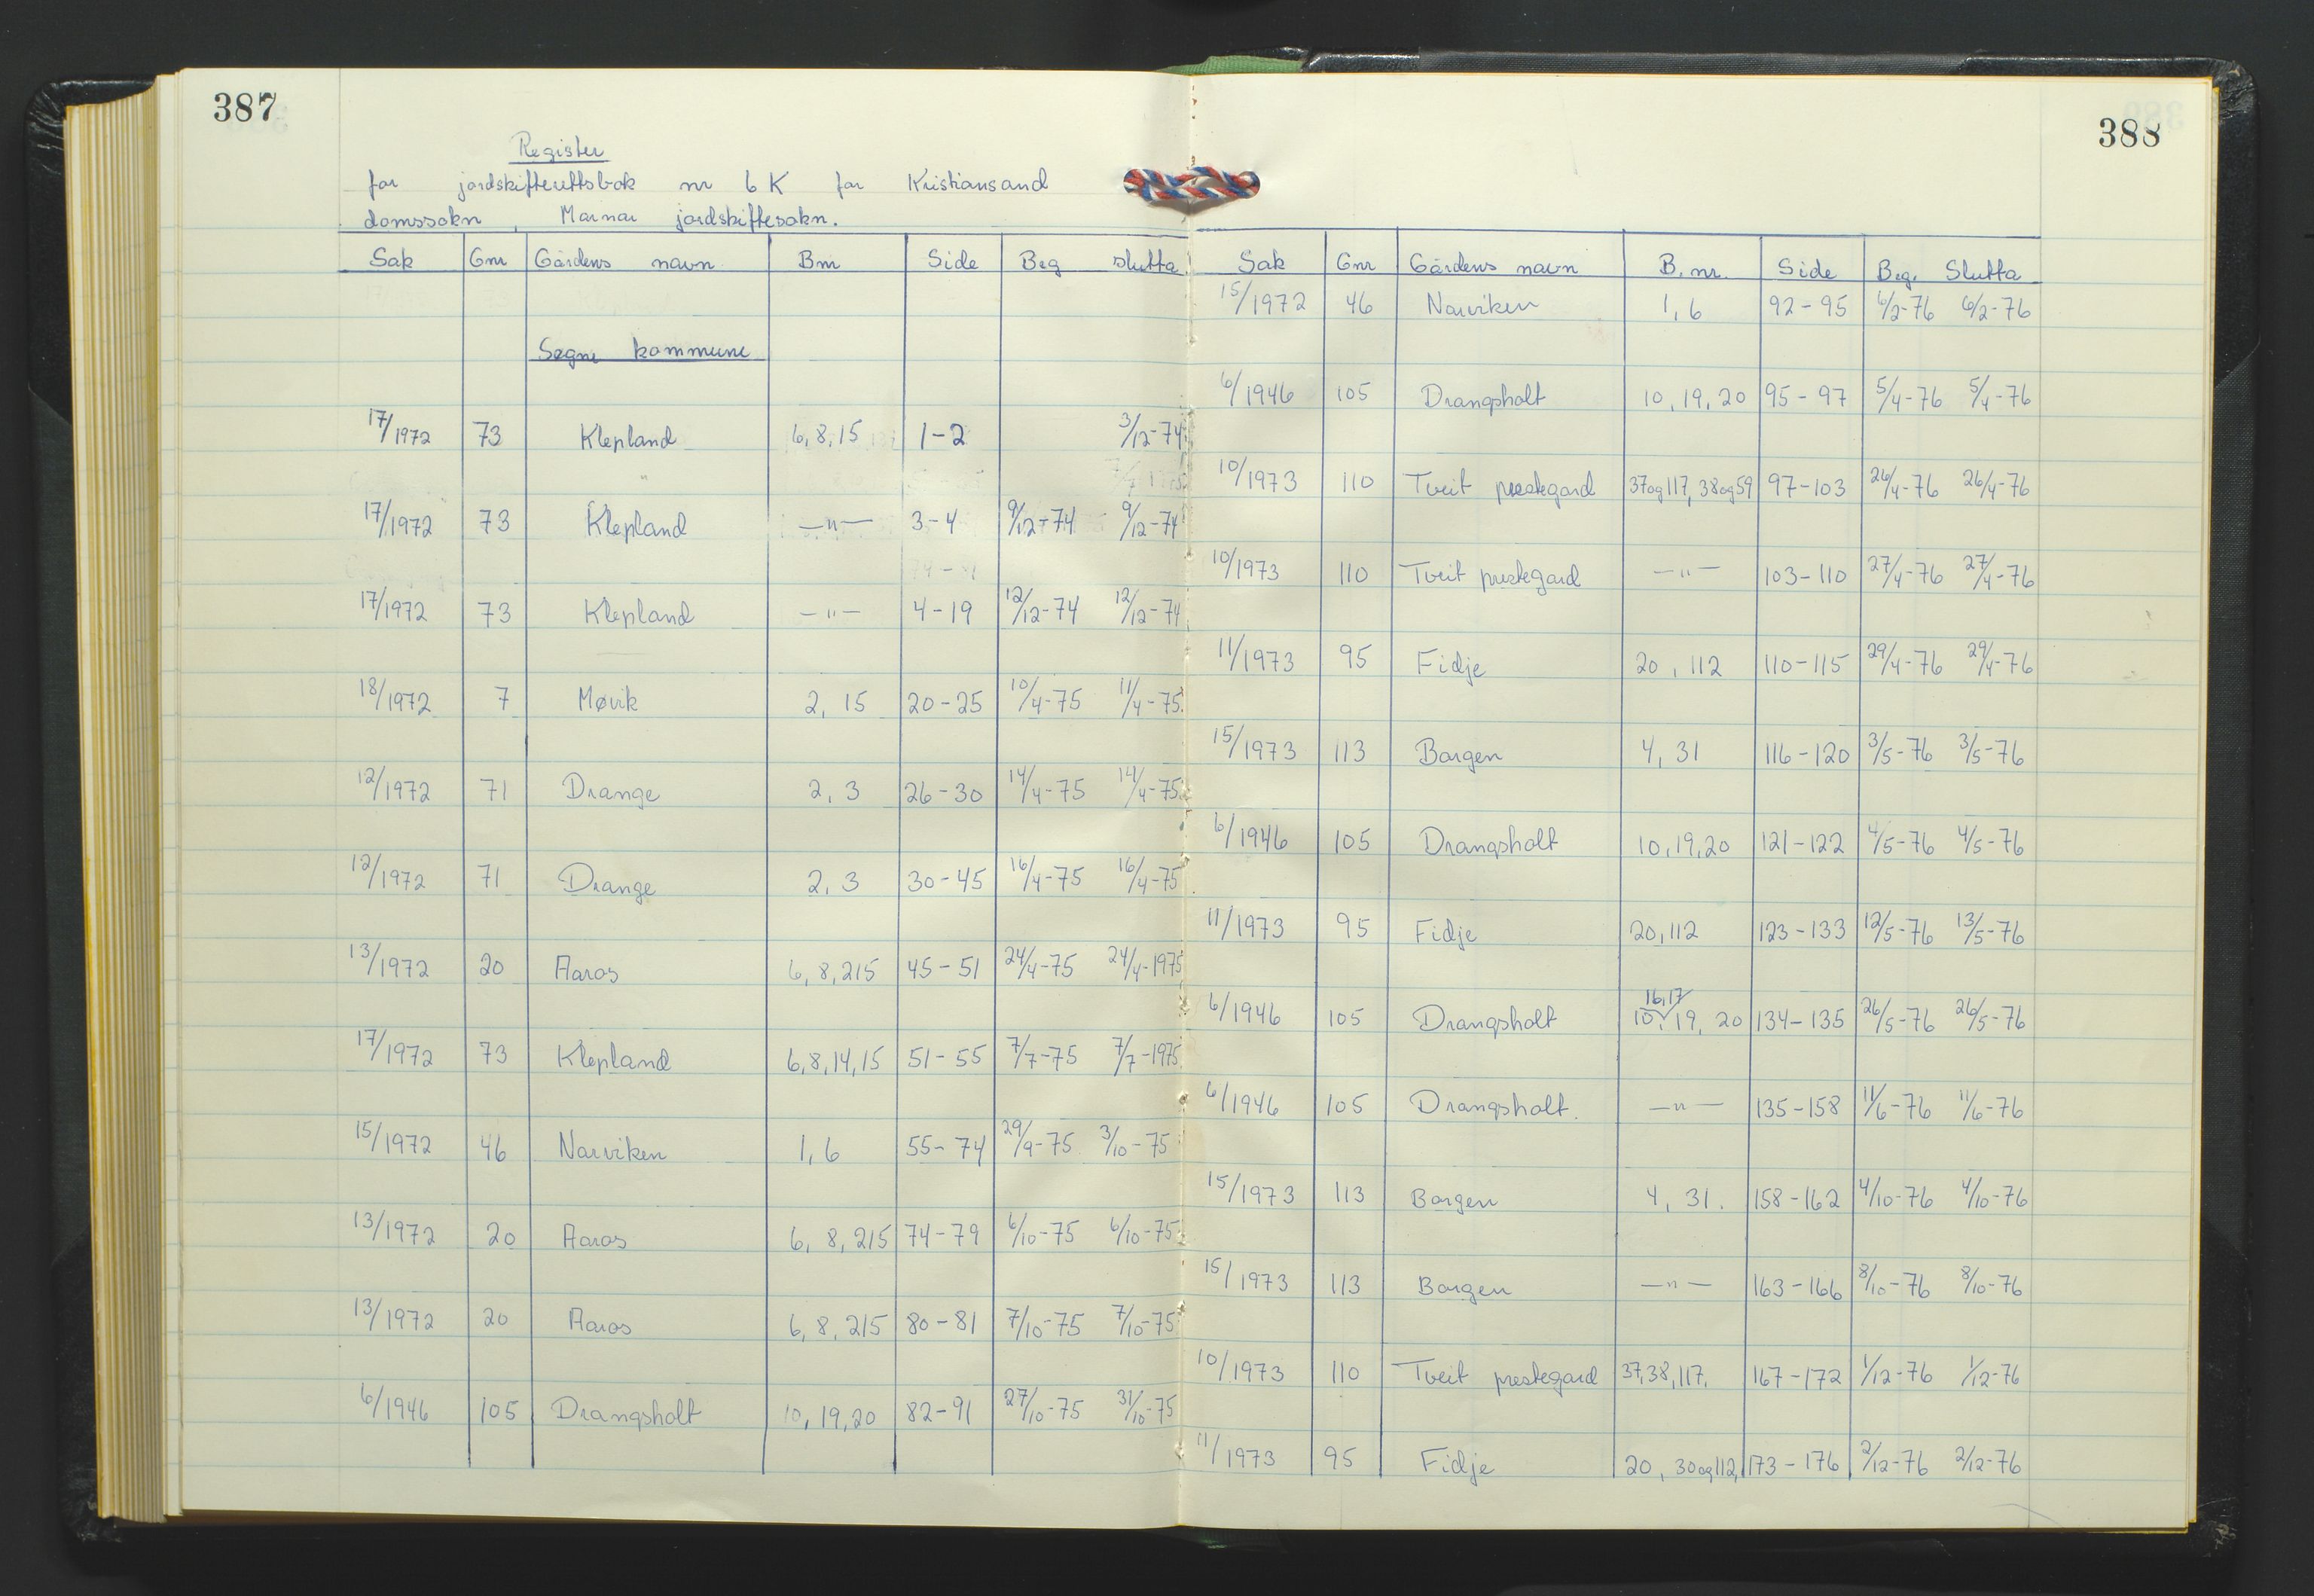 387
Register
for jordskifterettsbok nr 6 K for Kristiansand
domssokn, Marnar jordskiftesokn.
Sak Gnr Gårdens navn Bnr Side Beg slutta
Søgne kommune
17/1972 73 Klepland 6, 8, 15 1-2 3/12-74
17/1972 73 Klepland —"— 3-4 9/12-74 9/12-74
17/1972 73 Klepland —"— 4-19 12/12-74 12/12-74
18/1972 7 Møvik 2, 15 20-25 10/4-75 11/4-75
12/1972 71 Drange 2, 3 26-30 14/4-75 14/4-75
12/1972 71 Drange 2, 3 30-45 16/4-75 16/4-75
13/1972 20 Aaros 6, 8, 215 45-51 24/4-75 24/4-1975
17/1972 73 Klepland 6,8,14,15 51-55 7/7-75 7/7-1975
15/1972 46 Narviken 1, 6 55-74 29/9-75 3/10-75
13/1972 20 Aaros 6, 8, 215 74-79 6/10-75 6/10-75
13/1972 20 Aaros 6, 8, 215 80-81 7/10-75 7/10-75
6/1946 105 Drangsholt 10, 19, 20 82-91 27/10-75 31/10-75
388
Sak Gnr Gårdens navn B.nr. Side Beg. Slutta
15/1972 46 Narviken 1, 6 92-95 6/2-76 6/2-76
6/1946 105 Drangsholt 10, 19, 20 95-97 5/4-76 5/4-76
10/1973 110 Tveit prestegard 37og117, 38og59 97-103 26/4-76 26/4-76
10/1973 110 Tveit prestegard —"— 103-110 27/4-76 27/4-76
11/1973 95 Fidje 20, 112 110-115 29/4-76 29/4-76
15/1973 113 Borgen 4, 31 116-120 3/5-76 3/5-76
6/1946 105 Drangsholt 10,19,20 121-122 4/5-76 4/5-76
11/1973 95 Fidje 20,112 123-133 12/5-76 13/5-76
16,17
6/1946 105 Drangsholt 10, 19, 20 134-135 26/5-76 26/5-76
6/1946 105 Drangsholt. —"— 135-158 11/6-76 11/6-76
15/1973 113 Borgen 4, 31. 158-162 4/10-76 4/10-76
15/1973 113 Borgen —"— 163-166 8/10-76 8/10-76
10/1973 110 Tveit prestegard 37,38,117, 167-172 1/12-76 1/12-76
11/1973 95 Fidje 20, 30og112, 173-176 2/12-76 2/12-76